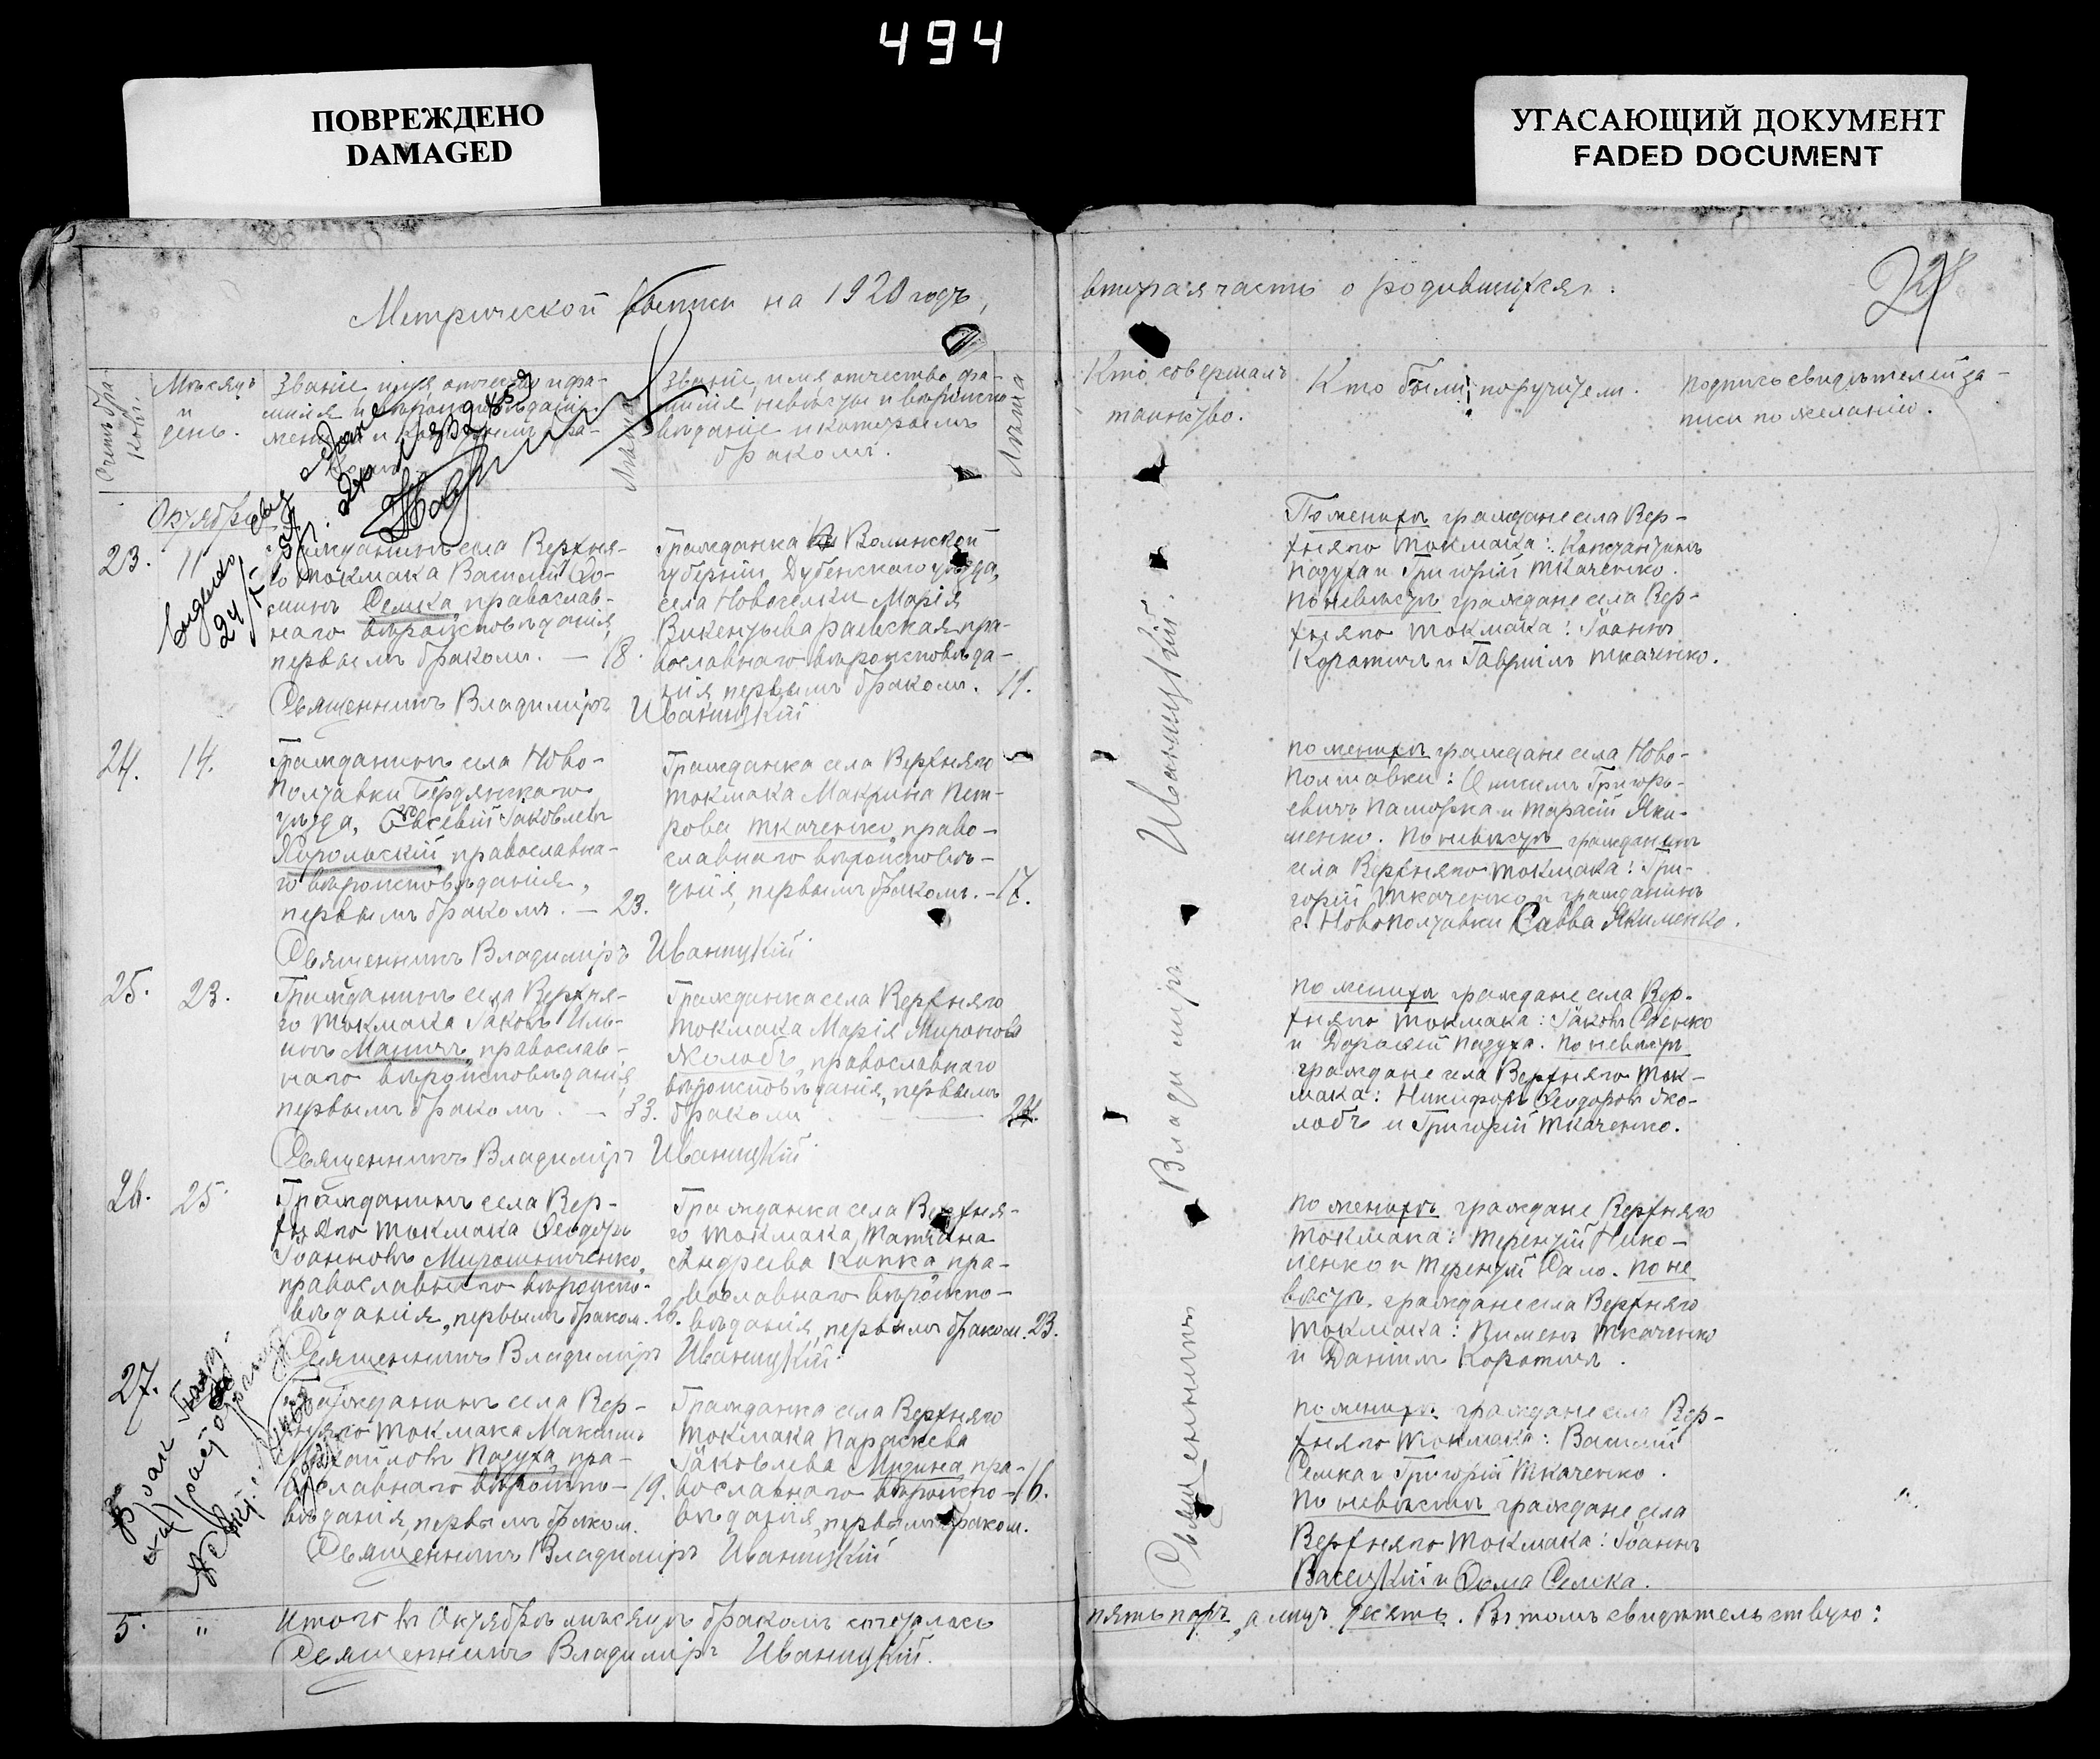 494
ПОВРЕЖДЕНО
DAMAGED
УГАСАЮЩИЙ ДОКУМЕНТ
FADED DOCUMENT
Метрической на 1920 годъ,
вторая часть о родившихся:
Счетъ бра-
ковъ.
Мѣсяцъ
и
день.
Званіе, имя, отчество и фа-
милія и
Лѣта
Званіе, имя, отчество, фа-
милія невѣсты и вѣроиспо-
вѣданіе и которымъ
бракомъ.
Лѣта
Кто совершалъ
таинство.
Кто были поручители.
подпись свидѣтелей за-
писи по желанію.
Октябрь
23.
11
села Верхня-
го Токмака Василій Ѳо-
минъ Семка, православ-
наго вѣроисповѣданія,
первымъ бракомъ. — 18.
Гражданка Волынской
губерніи, Дубенскаго уѣзда,
села Новоселки Марія
Викентьева Раевская, пра-
вославнаго вѣроисповѣда-
нія, первымъ бракомъ. 19.
Священникъ Владиміръ Иваницкій
По женихѣ граждане села Вер-
хняго Токмака: Константинъ
Падуха и Григорій Ткаченко.
По невѣстѣ граждане села Вер-
хняго Токмака: Іоаннъ
Коротичъ и Гавріилъ Ткаченко.
24.
14.
Гражданинъ села Ново-
полтавки Бердянскаго
уѣзда, Евсевій Іаковлевъ
Хорольскій, православна-
го вѣроисповѣданія,
первымъ бракомъ. — 23.
Гражданка села Верхняго
Токмака Макрина Пет-
рова Ткаченко, право-
славнаго вѣроисповѣ-
данія, первымъ бракомъ. — 17.
Священникъ Владиміръ Иваницкій
по женихѣ граждане села Ново-
полтавки: Онисимъ Григорь-
евичъ и Тарасій Яки-
менко. По невѣстѣ гражданинъ
села Верхняго Токмака: Гри-
горій Ткаченко и гражданинъ
с. Новополтавки Савва Якименко.
25.
23.
Гражданинъ села Верхня-
го Токмака Іаковъ Иль-
инъ Маничъ, православ-
наго вѣроисповѣданія,
первымъ бракомъ. — 33.
Гражданка села Верхняго
Токмака Марія Миронова
Жолобъ, православнаго
вѣроисповѣданія, первымъ
бракомъ 24.
Священникъ Владиміръ Иваницкій
по женихѣ граждане села Вер-
хняго Токмака: Іаковъ Саенко
и Дорофей Падуха. По невѣстѣ
граждане села Верхняго Ток-
мака: Никифоръ Ѳеодоровъ Жо-
лобъ и Григорій Ткаченко.
26.
25.
Гражданинъ села Вер-
хняго Токмака Ѳеодоръ
Іоанновъ Мирошниченко,
православнаго вѣроиспо-
вѣданія, первымъ браком.
Гражданка села Верхня-
го Токмака, Татіана
Андреева Копка, пра-
вославнаго вѣроиспо-
вѣданія, первымъ браком. 23.
Священникъ Владиміръ Иваницкій
по женихѣ граждане Верхняго
Токмака: Терентій Нико-
ленко и Терентій Сало. По не
вѣстѣ, граждане села Верхняго
Токмака: Пименъ Ткаченко
и Даніилъ Коротичъ.
27.
Гражданинъ села Вер-
хняго Токмака Максимъ
Михайловъ Падуха, пра-
вославнаго вѣроиспо- 19.
вѣданія, первымъ браком.
Гражданка села Верхняго
Токмака Параскева
Іаковлева Мидина, пра-
вославнаго вѣроиспо- 16.
вѣданія, первымъ браком.
Священникъ Владиміръ Иваницкій
по женихѣ граждане села Вер-
хняго Токмака: Василій
Семка и Григорій Ткаченко.
По невѣстѣ граждане села
Верхняго Токмака: Іоаннъ
Васецкій и Ѳома Семка.
Священникъ Владиміръ Иваницкій.
5.
Итого въ Октябрѣ мѣсяцѣ бракомъ сочеталось
пять паръ, а лицъ десять. Въ томъ свидѣтельствую:
Священникъ Владиміръ Иваницкій.